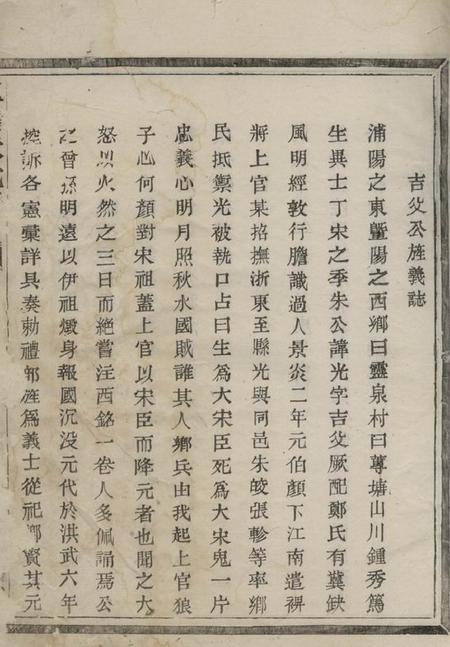 吉父公旌義誌
浦陽之東暨陽之西鄉曰靈泉村曰蓴塘山川鍾秀篤
生異士丁宋之季朱公諱光字吉父厥配鄭氏有冀缺
風明經敦行膽識過人景炎二年元伯顏下江南遣裨
將上官某招撫浙東至縣光與同邑朱皎張軫等率鄉
民抵禦光被執口占曰生為大宋臣死為大宋鬼一片
忠義心明月照秋水國賊誰其人鄉兵由我起上官狼
子心何顏對宋祖蓋上官以宋臣而降元者也聞之大
怒以火然之三日而絕嘗注西銘一卷人多佩誦焉公
曾孫明遠以伊祖燬身報國沉没元代於洪武六年
控訴各憲彙詳具奏勅禮部旌為義士從祀鄉賢其元